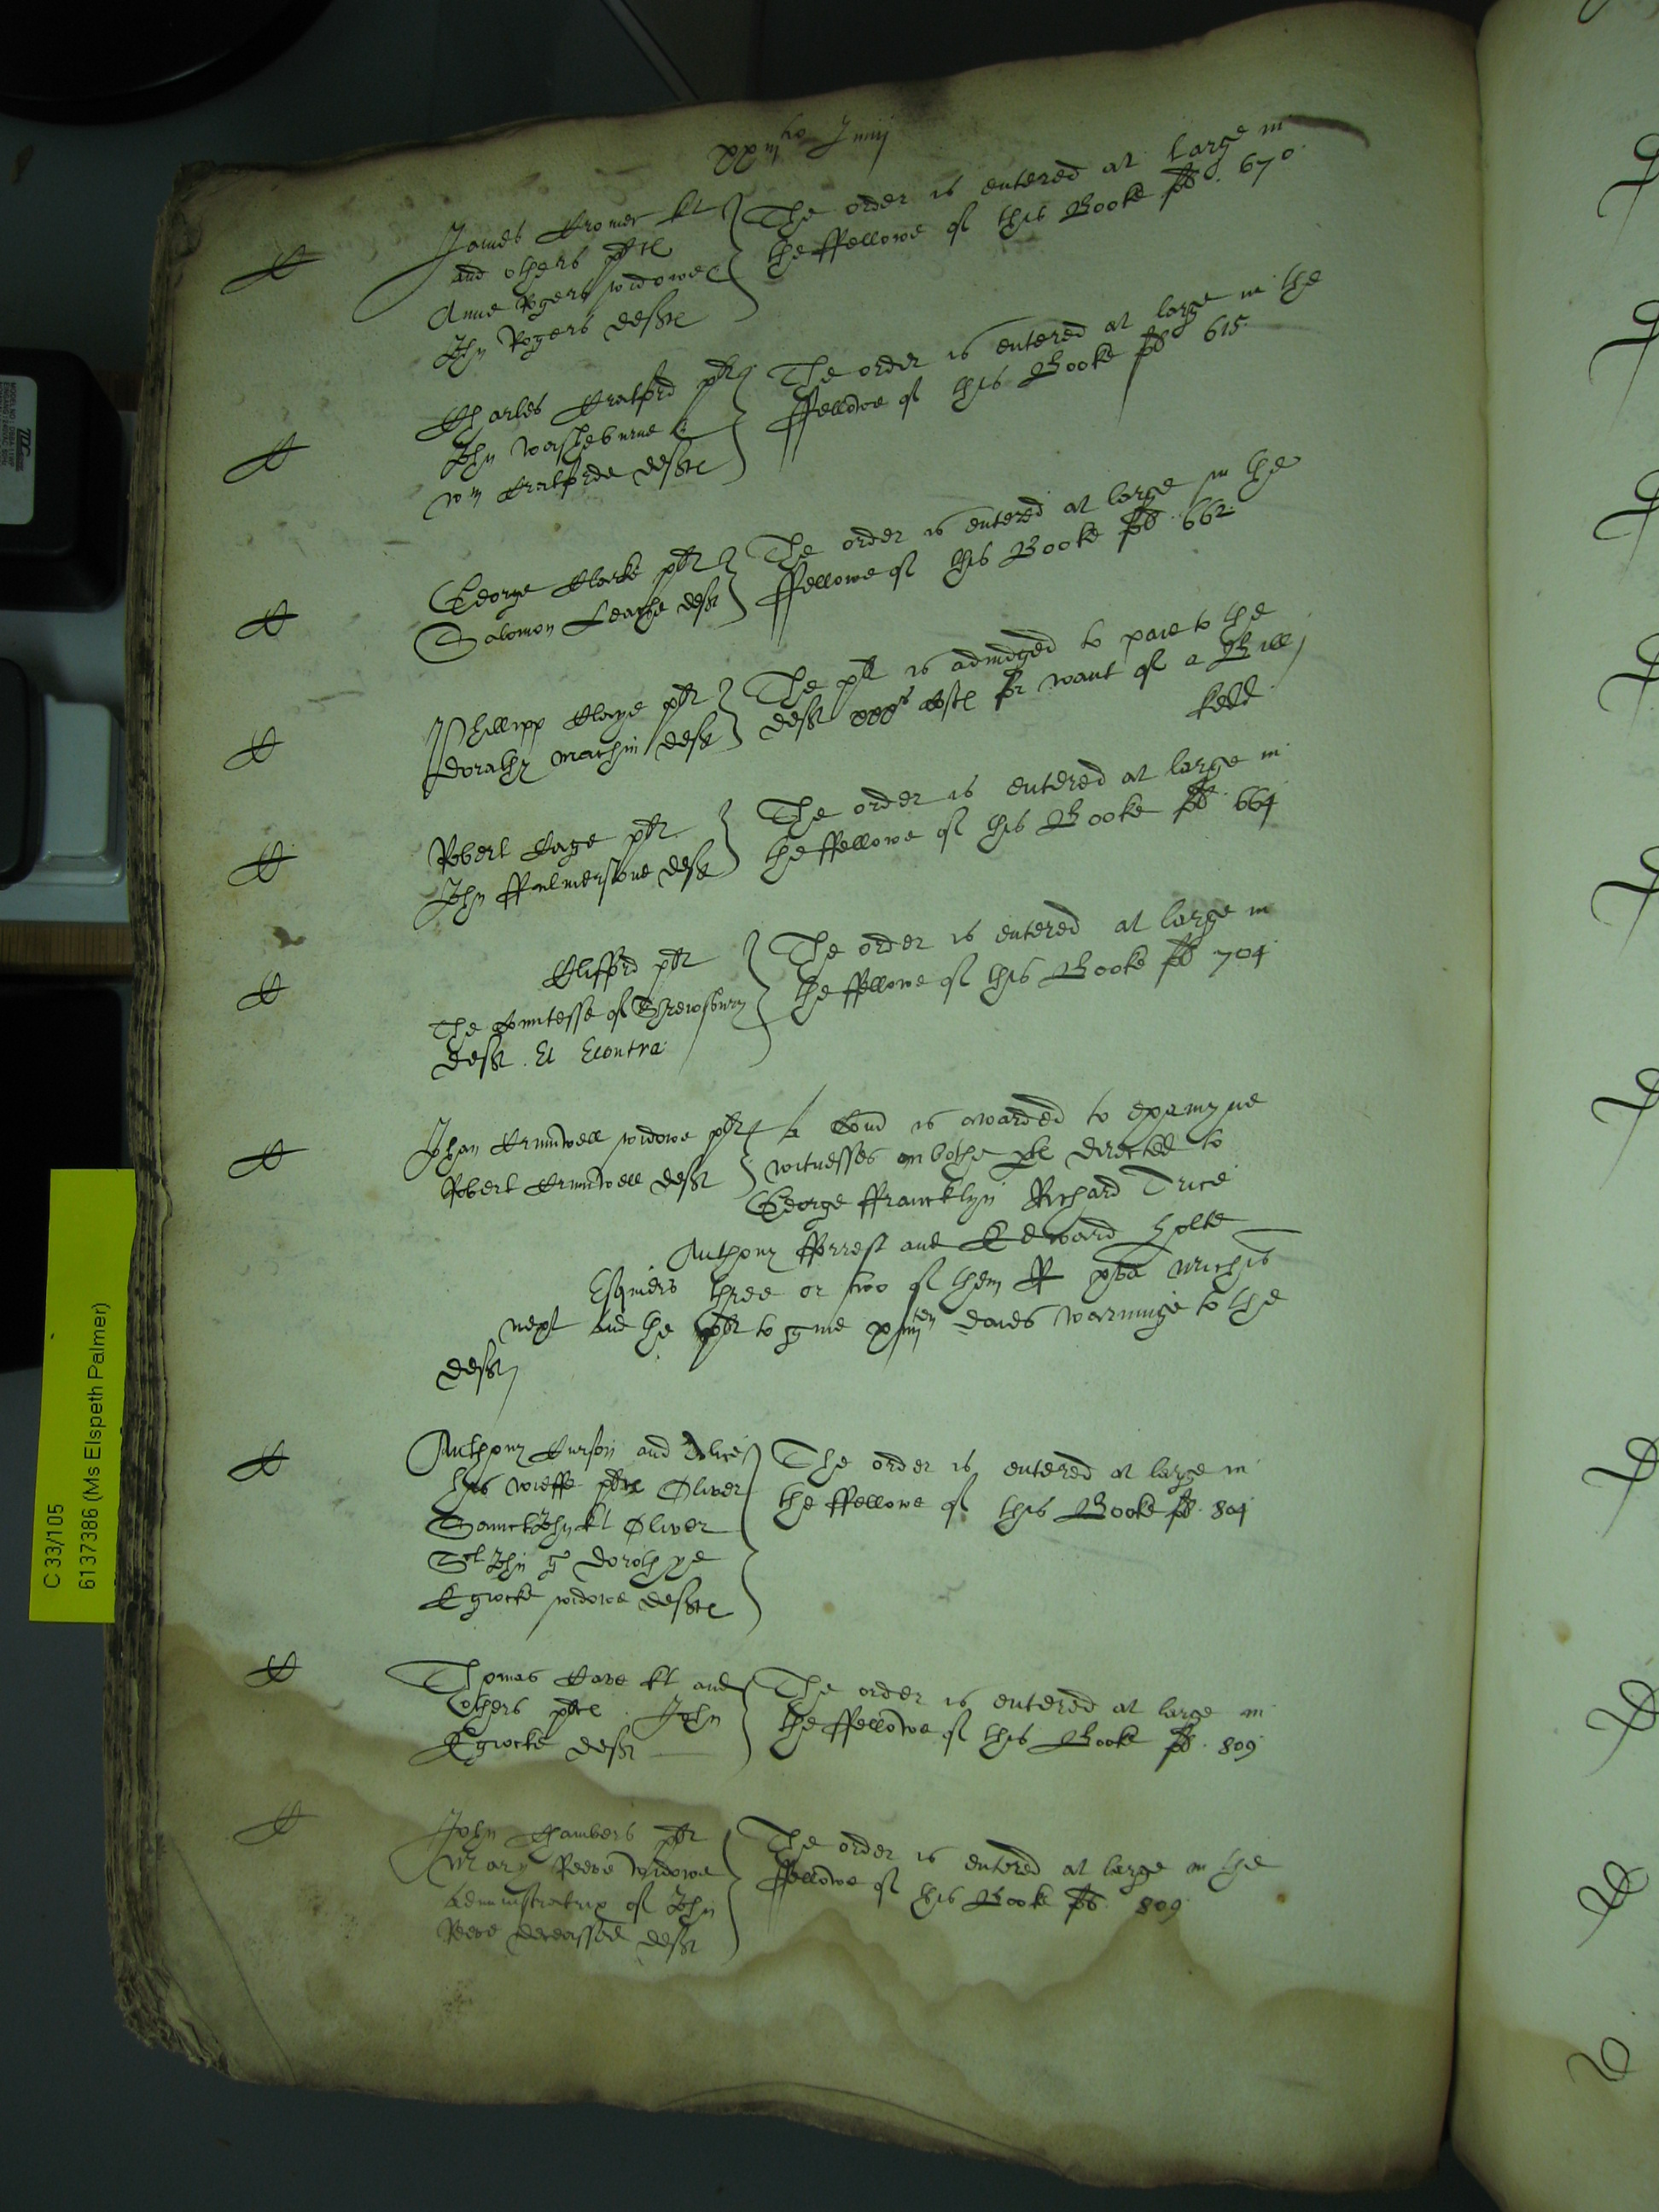 Junij
C
James Cromer kt
and others plts
Anne Rogers widowe
John Rogers defts
The order is entered at large in
the ffellowe of this Booke fo. 670.
C
Charles Cratford plt
John Washeburne &
Wm Cratforde defts
The order is entered at large in the
ffellowe of this Booke fo 615.
C
George Clarke plt
Salomon Leache deft
The order is entered at large in the
ffellowe of this Booke fo. 662.
C
Phillipp Claye plt
Dorathy Machin deft
The plt is adiudged to paie to the
deft xxxs costs for want of a Bill
C
Robert Cage plt
John ffulmerstone deft
The order is entered at large in
the ffellowe of this Booke fo. 664
C
Clifford plt
The Countesse of Shrewsbury
deft. Et Econtra
The order is entered at large in
the ffellowe of this Booke fo 704
C
Johan Crumwell widowe plt
Robert Crumwell deft
A Com is awarded to examyne
witnesses on bothe pts directed to
George ffrancklyn Richard Trice
Anthony fforrest and Edward Holte
Esquiers three or two of them
next and the plt to giue xiiijten daies warninge to the
deft
C
Anthony Curson and Alice
his wieffe plts Oliver
Sainct John kt Oliver
St John g Dorothye
Egiocke widowe defts
The order is entered at large in
the ffellowe of this Booke fo. 804
C
Thomas Cave kt and
others plts. John
Egiocke deft
The order is entered at large in
the ffellowe of this Booke fo. 809
C
John Chambers plt
Mary Reeve widowe
Administratrix of John
Reeve deceassed deft
The order is entered at large in the
ffellowe of this Booke fo. 809
C 33/105
6137386 (Ms Elspeth Palmer)